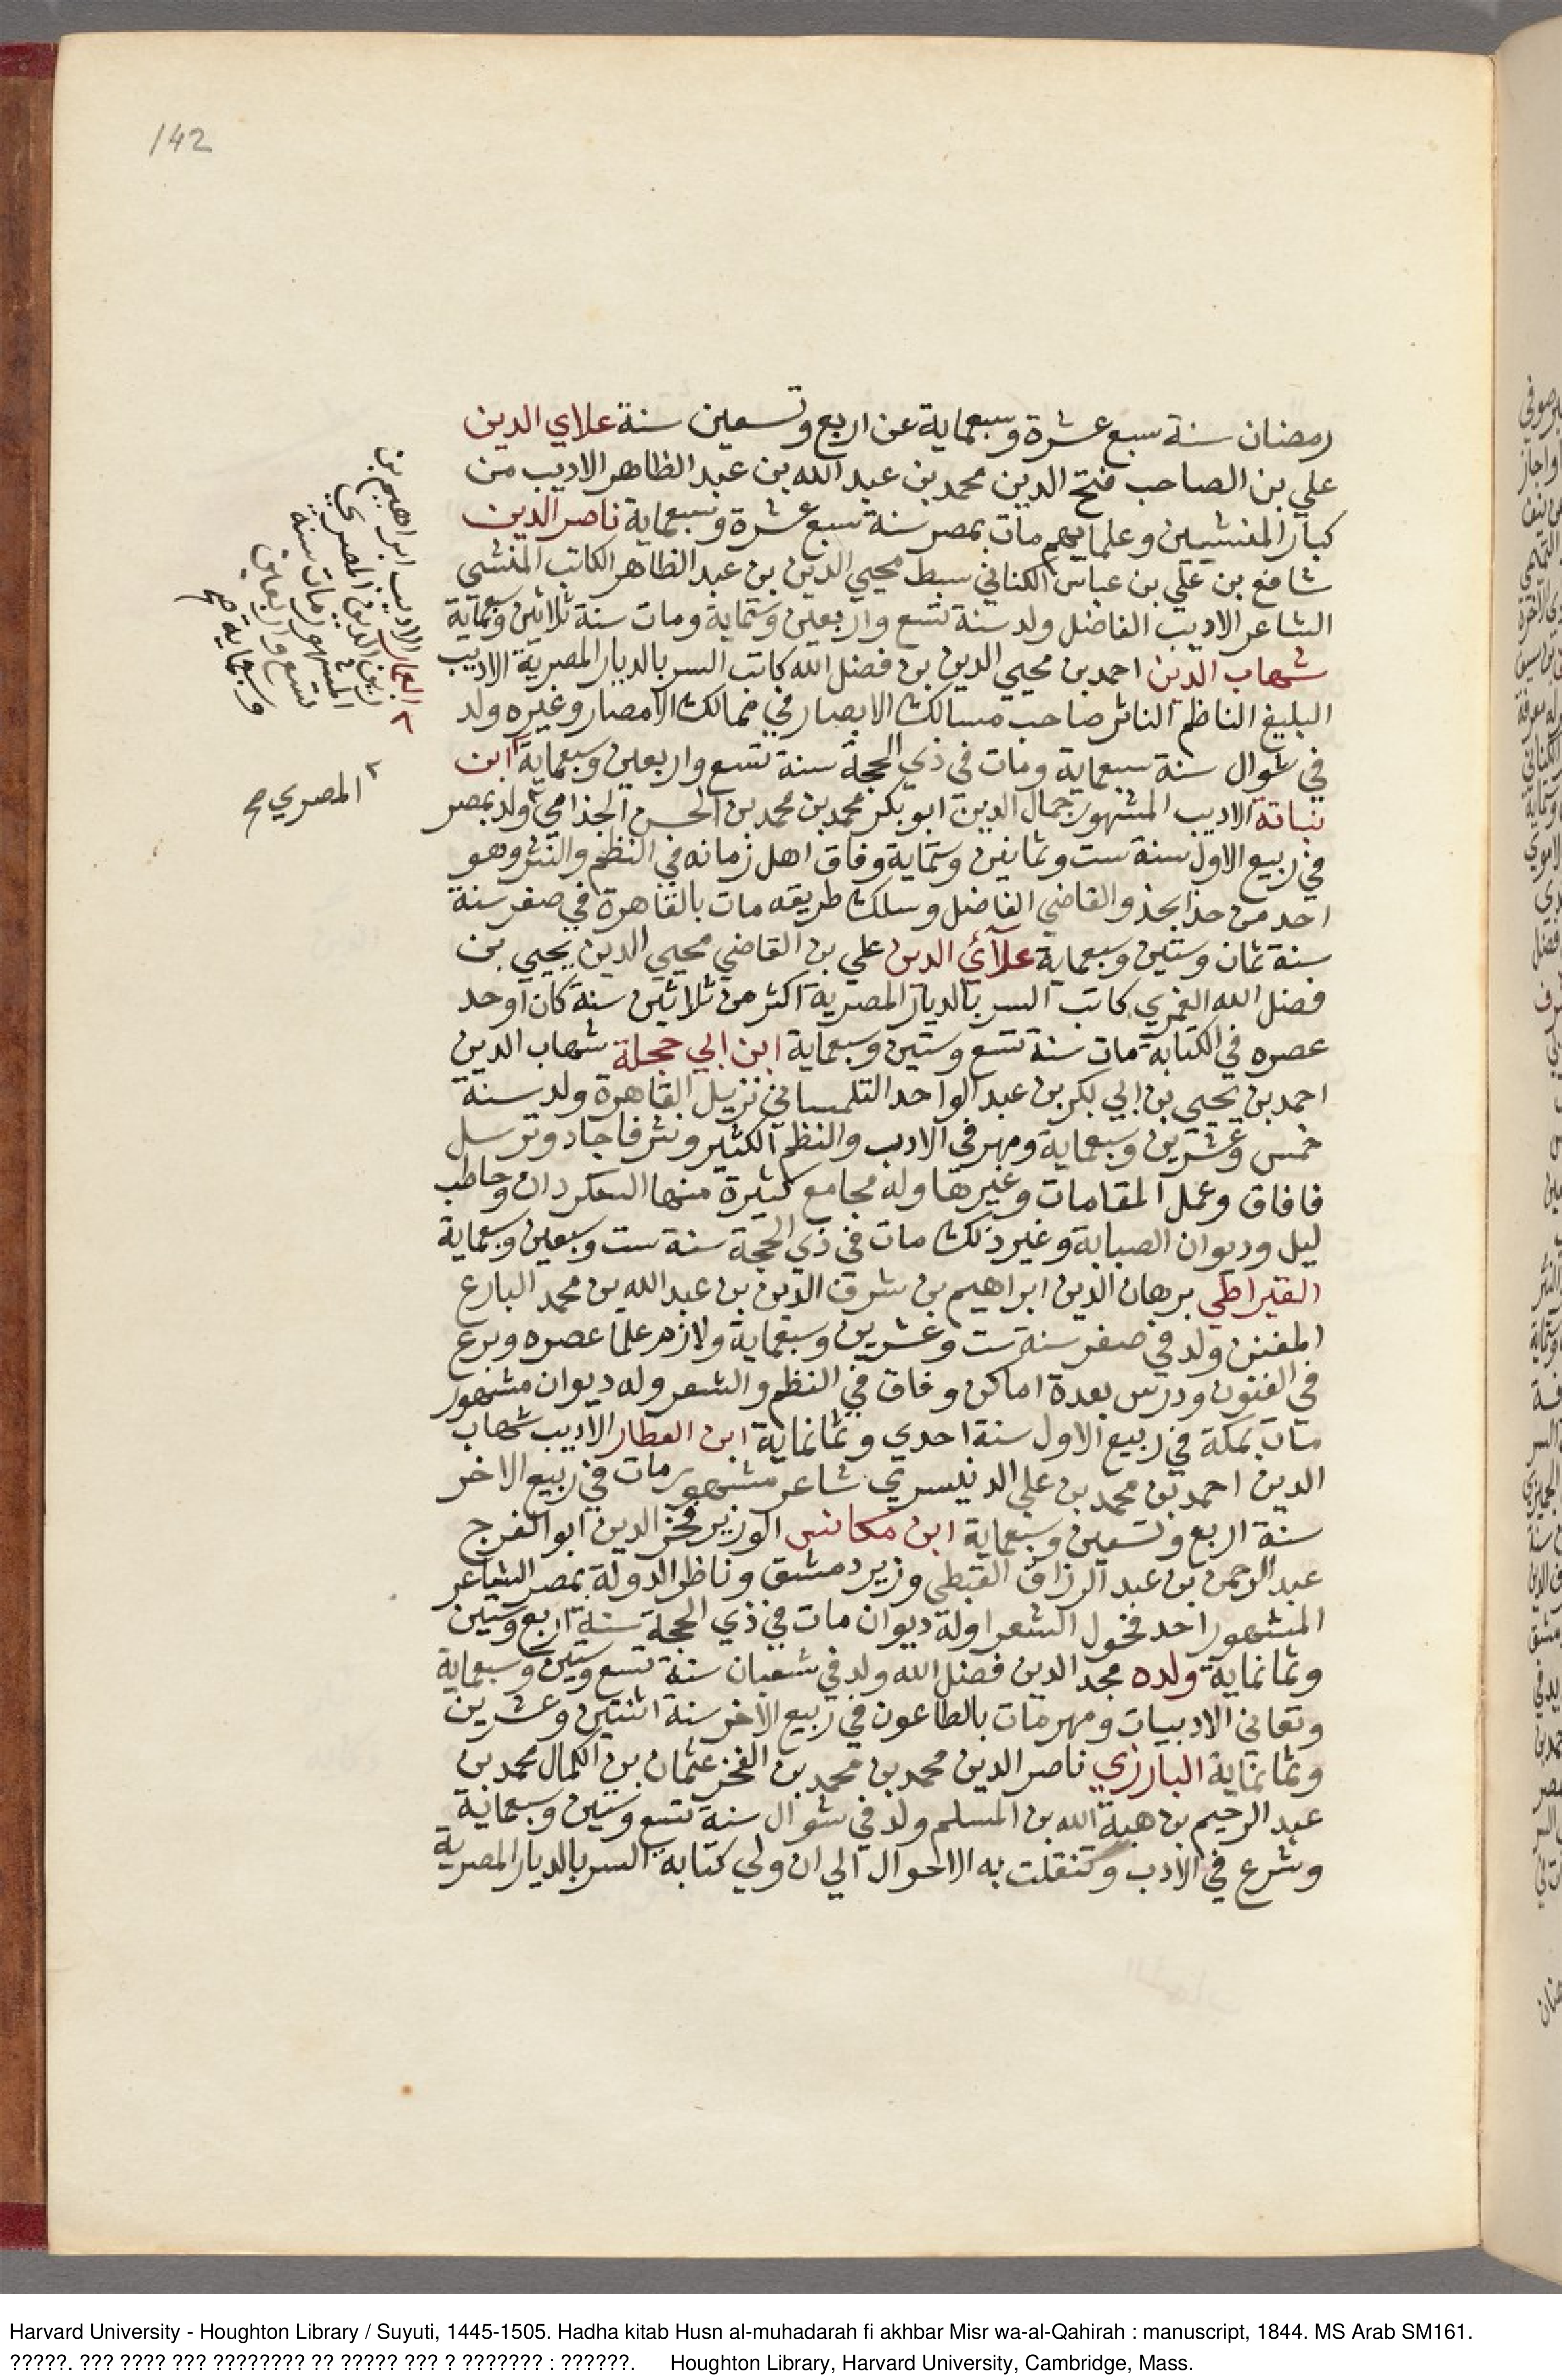 142
رمضان سنة سبع عشرة وسبعماية عن اربع وتسعين سنة علاي الدين
علي بن الصاحب فتح الدين محمد بن عبد الله بن عبد الظاهر الاديب من
كبار المنشيين وعلمايهم مات بمصر سنة سبع عشرة وسبعماية ناصر الدين
شافع بن علي بن عباس الكناني سبط محيي الدين بن عبد الظاهر الكاتب المنشي
الشاعر الاديب الفاضل ولد سنة تسع واربعين وستماية ومات سنة ثلاثين وسبعماية
شهاب الدين احمد بن محيي الدين بن فضل الله كاتب السر بالديار المصرية الاديب
البليغ الناظم الناثر صاحب مسالك الابصار في ممالك الامصار وغيره ولد
في شوال سنة سبعماية ومات في ذي الحجة سنة تسع واربعين وسبعماية ابن
نباتة الاديب المشهور جمال الدين ابو بكر محمد بن محمد بن محمد بن الحسن الجذامي ولد بمصر
في ربيع الاول سنة ست وثمانين وستماية وفاق اهل زمانه في النظم والنثر وهو
احد من حذا بحذو القاضي الفاضل وسلك طريقه مات بالقاهرة في صفر سنة
سنة ثمان وستين وسبعماية علآئ الدين علي بن القاضي محيي الدين يحيي بن
فضل الله العمري كاتب السر بالديار المصرية اكثر من ثلاثين سنة كان اوحد
عصره في الكتابة مات سنة تسع وستين وسبعماية ابن ابي حجلة شهاب الدين
احمد بن يحيي بن ابي بكر بن عبد الواحد التلمساني نزيل القاهرة ولد سنة
خمس وعشرين وسبعماية ومهر في الادب والنظم الكثير ونثر فاجاد وترسل
فافاق وعمل المقامات وغيرها وله مجامع كثيرة منها السكردان وحاطب
ليل وديوان الصبابة وغير ذلك مات في ذي الحجة سنة ست وسبعين وسبعماية
القيراطي برهان الدين ابراهيم بن شرف الدين بن عبد الله بن محمد البارع
المفنن ولد في صفر سنة ست وعشرين وسبعماية ولازم علما عصره وبرع
في الفنون ودرس بعدة اماكن وفاق في النظم والشعر وله ديوان مشهور
مات بمكة في ربيع الاول سنة احدي وثمانماية ابن العطار الاديب شهاب
الدين احمد بن محمد بن علي الدنيسري شاعر مشهور مات في ربيع الاخر
سنة اربع وتسعين وسبعماية ابن مكانس الوزير فخر الدين ابو الفرج
عبد الرحمن بن عبد الرزاق القبطي وزير دمشق وناظر الدولة بمصر الشاعر
المشهور احد فحول الشعرا وله ديوان مات في ذي الحجة سنة اربع وستين
وثمانماية ولده مجد الدين فضل الله ولد في شعبان سنة تسع وستين وسبعماية
وتعاني الادبيات ومهر مات بالطاعون في ربيع الاخر سنة اثنتين وعشرين
وثمانماية البارزي ناصر الدين محمد بن محمد بن الفخر عثمان بن الكمال محمد بن
عبد الرحيم بن هبة الله بن المسلم ولد في شوال سنة تسع وستين وسبعماية
وشرع في الادب وتنقلت به الاحوال الي ان ولي كتابة السر بالديار المصرية
المعمار الاديب ابراهيم بن
المشهور مات سنة
تسع واربعين
وسبعماية صح
المصري صح
Harvard University - Houghton Library / Suyuti, 1445-1505. Hadha kitab Husn al-muhadarah fi akhbar Misr wa-al-Qahirah : manuscript, 1844. MS Arab SM161.
?????. ??? ???? ??? ???????? ?? ????? ??? ? ??????? : ??????. Houghton Library, Harvard University, Cambridge, Mass.